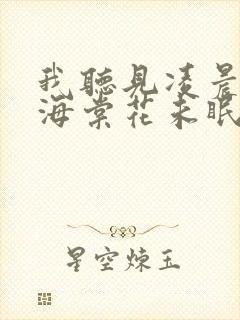 我聽見凌晨
海棠花未眠
星空煉玉